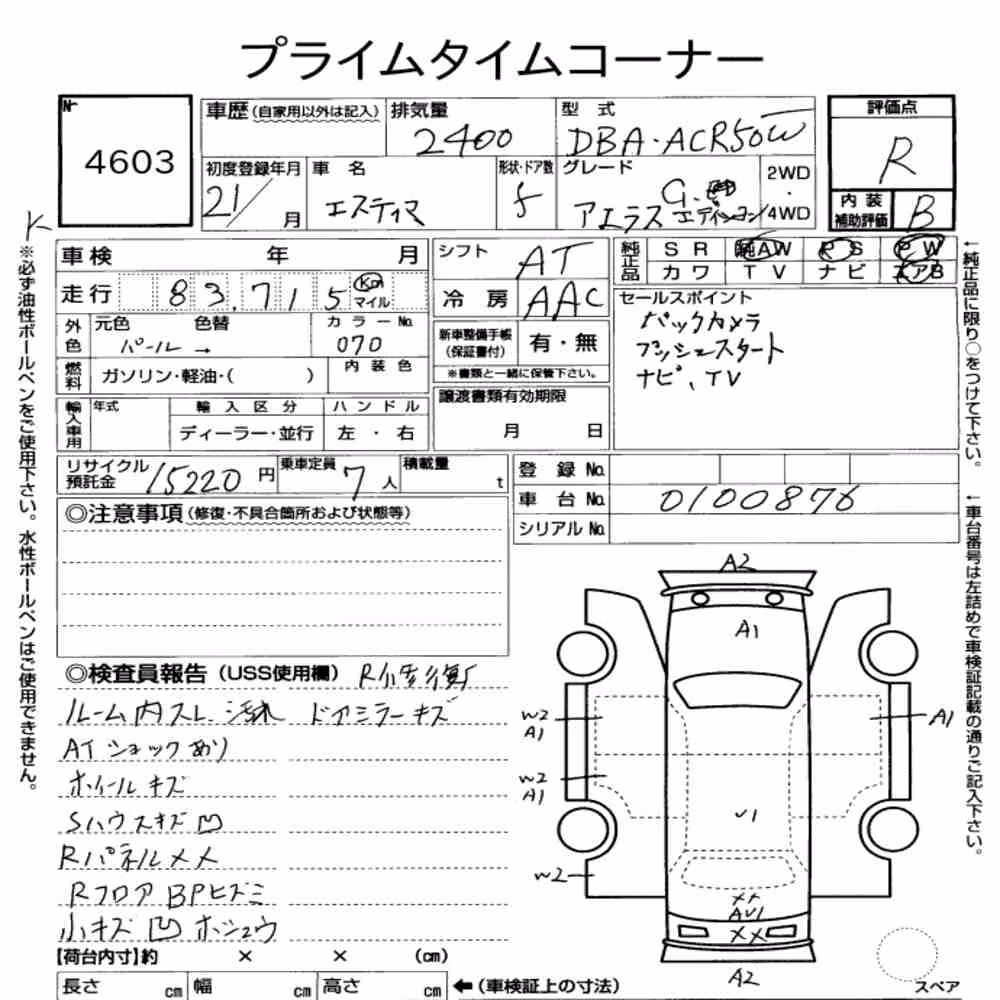 プライムタイムコーナー
No.
4603
車歴(自家用以外は記入)
排気量
2400
型 式
DBA・ACR50W
評価点
R
初度登録年月
21/ 月
車 名
エスティマ
形状・ドア数
5
グレード
アエラス G.エディション
2WD
・
4WD
内 装
補助評価
B
K
車検 年 月
シフト
AT
純正品
SR 純AW PS PW
カワ TV ナビ エアB
走行
83,715
Km
マイル
冷 房
AAC
セールスポイント
バックカメラ
プッシュスタート
ナビ、TV
外色
元色 色替
パール →
カラーNo.
070
新車整備手帳
(保証書付)
有・無
※書類と一緒に保管下さい。
燃料
ガソリン・軽油・( )
内装色
譲渡書類有効期限
月 日
輸入車用
年式
輸入区分
ディーラー・並行
ハンドル
左・右
リサイクル
預託金
15220 円
乗車定員
7 人
積載量
t
登録No.
車台No.
0100876
シリアルNo.
◎注意事項(修復・不具合箇所および状態等)
◎検査員報告(USS使用欄) R小修復
ルーム内スレ、汚れ ドアミラーキズ
ATショックあり
ホイールキズ
Sハウスキズ凹
Rパネルメメ
RフロアBPヒズミ
小キズ凹ホシュウ
A2
A1
W2
A1
A1
W2
A1
U1
W2
XX
AU1
XX
A2
スペア
【荷台内寸】約 × × (cm)
長さ cm 幅 cm 高さ cm ←(車検証上の寸法)
※必ず油性ボールペンをご使用下さい。水性ボールペンはご使用できません。
←純正品に限り○をつけて下さい。
←車台番号は左詰めで車検証記載の通りご記入下さい。